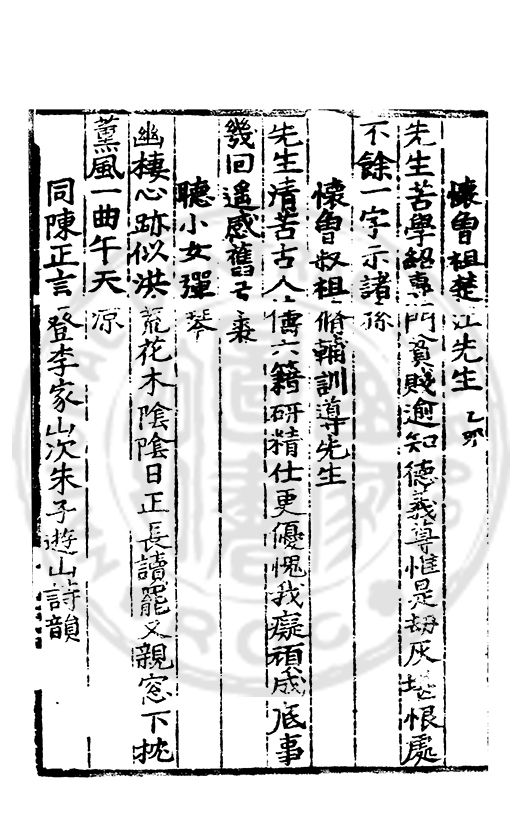 懷曾祖楚江先生 乙卯
先生苦學紹專門貧賤逾知德義尊惟是刧灰堪恨處
不餘一字示諸孫
懷曾叔祖脩輔訓導先生
先生清苦古人儔六籍研精仕更優愧我癡頑成底事
幾回遥感舊弓裘
聽小女彈琴
幽棲心跡似洪荒花木陰陰日正長讀罷父親窓下枕
薰風一曲午天凉
同陳正言登李家山次朱子遊山詩韻